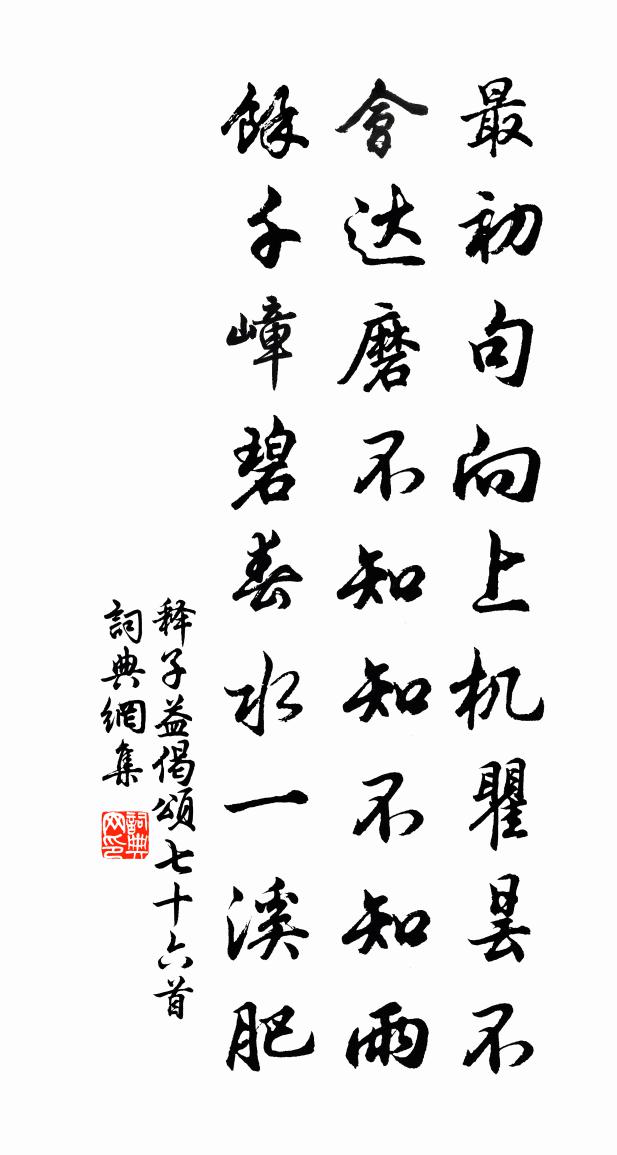 最初句向上机瞿昙不
會达磨不知知不知雨
餘千嶂碧春水一溪肥
释子益偈頌七十六首
詞典網集
詞典网印